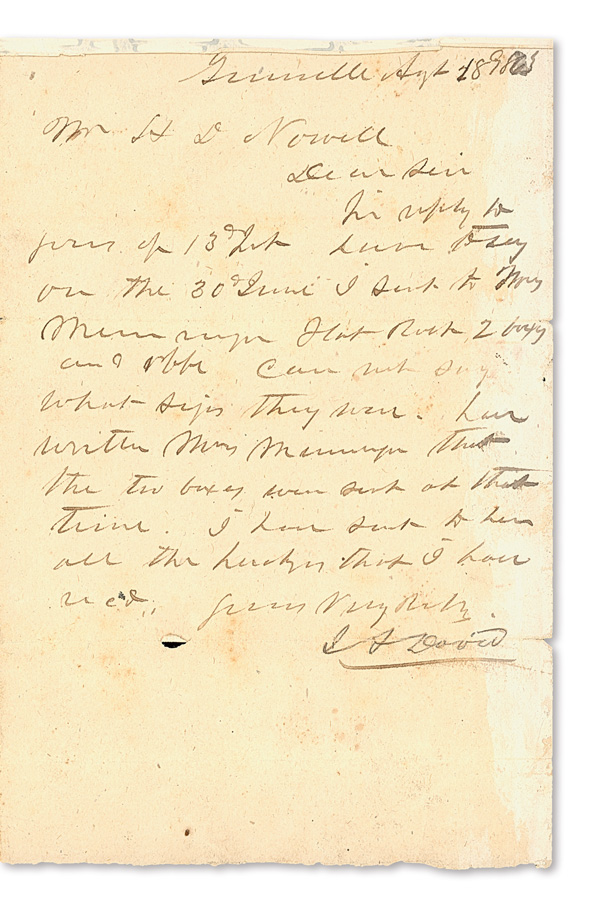 Greenville Agt 18 1865
Mr H D Nowell
Dear Sir
In reply to
yours of 13th Inst have to say
on the 30th June I sent to Mrs
Memminger Flat Rock 2 boxes
and 1 bbl Can not say
what sizes they were. have
written Mrs Memminger that
the two boxes were sent at that
time. I have sent to her
all the packages that I have
recd., yours Very Resply.
David